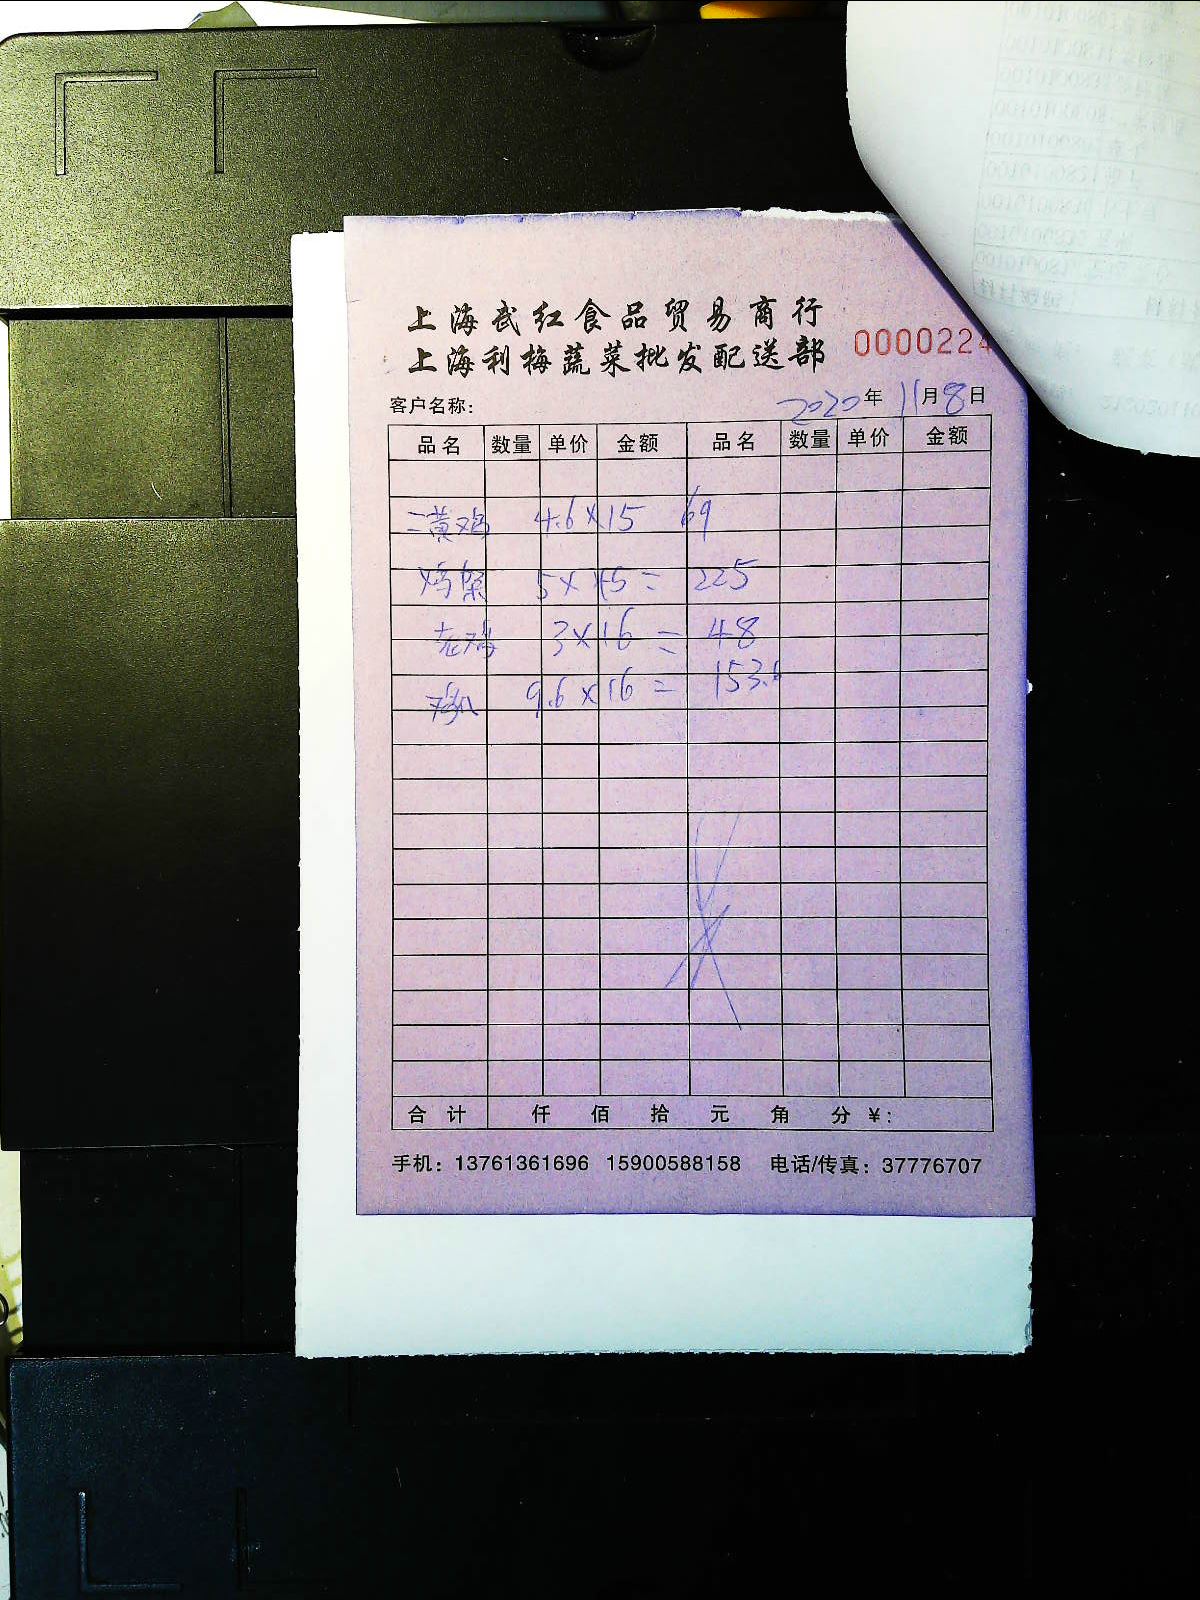 上海武红食品贸易商行
上海利梅蔬菜批发配送部
0000224
客户名称: 2020年 11月 8日
品名 数量 单价 金额 品名 数量 单价 金额
三黄鸡 4.6×15 69
鸡架 5× 45= 225
老鸡 3×16= 48
9.6×16= 153.6
合计 仟 佰 拾 元 角 分 ¥:
手机: 13761361696 15900588158 电话/传真: 37776707